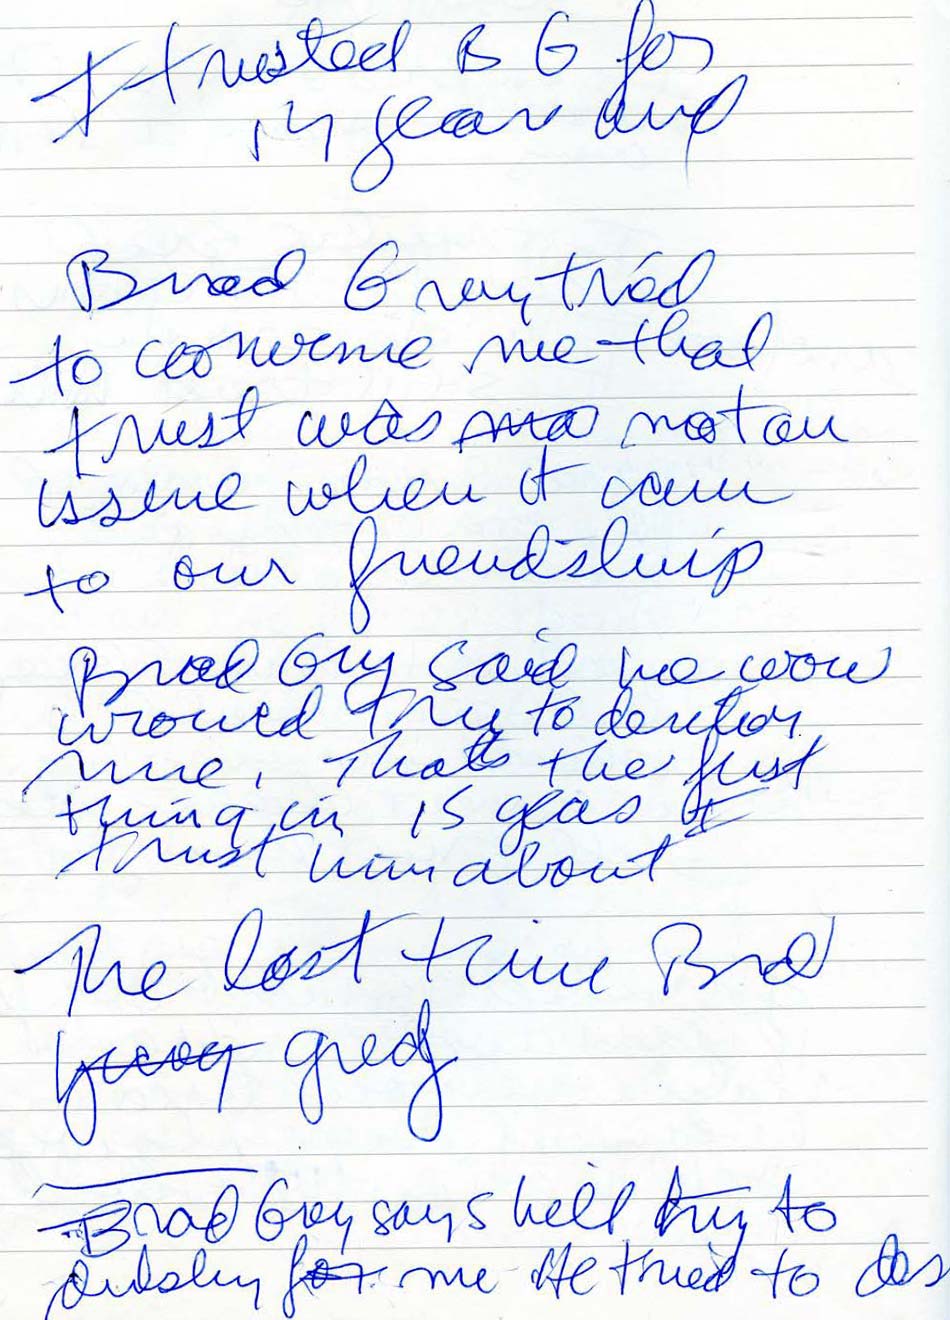 I trusted B G for
14 years and
Brad Grey tried
to convince me that
trust was not an
issue when it came
to our friendship
Brad Grey said he wou
would try to
me. That's the first
thing in 15 years I
trust him about
The last time Brad
Brad Grey says he'll try to
for me He tried to des